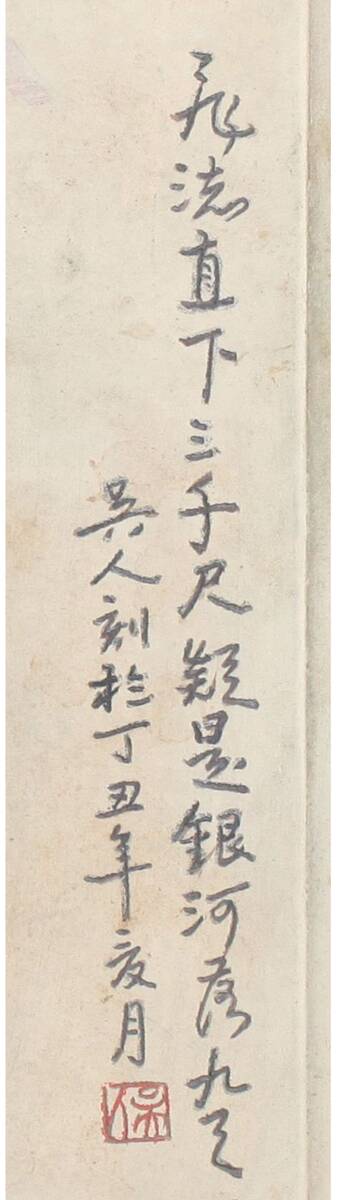 飛流直下三千尺疑是銀河落九天
吴人刻於丁丑年亥月